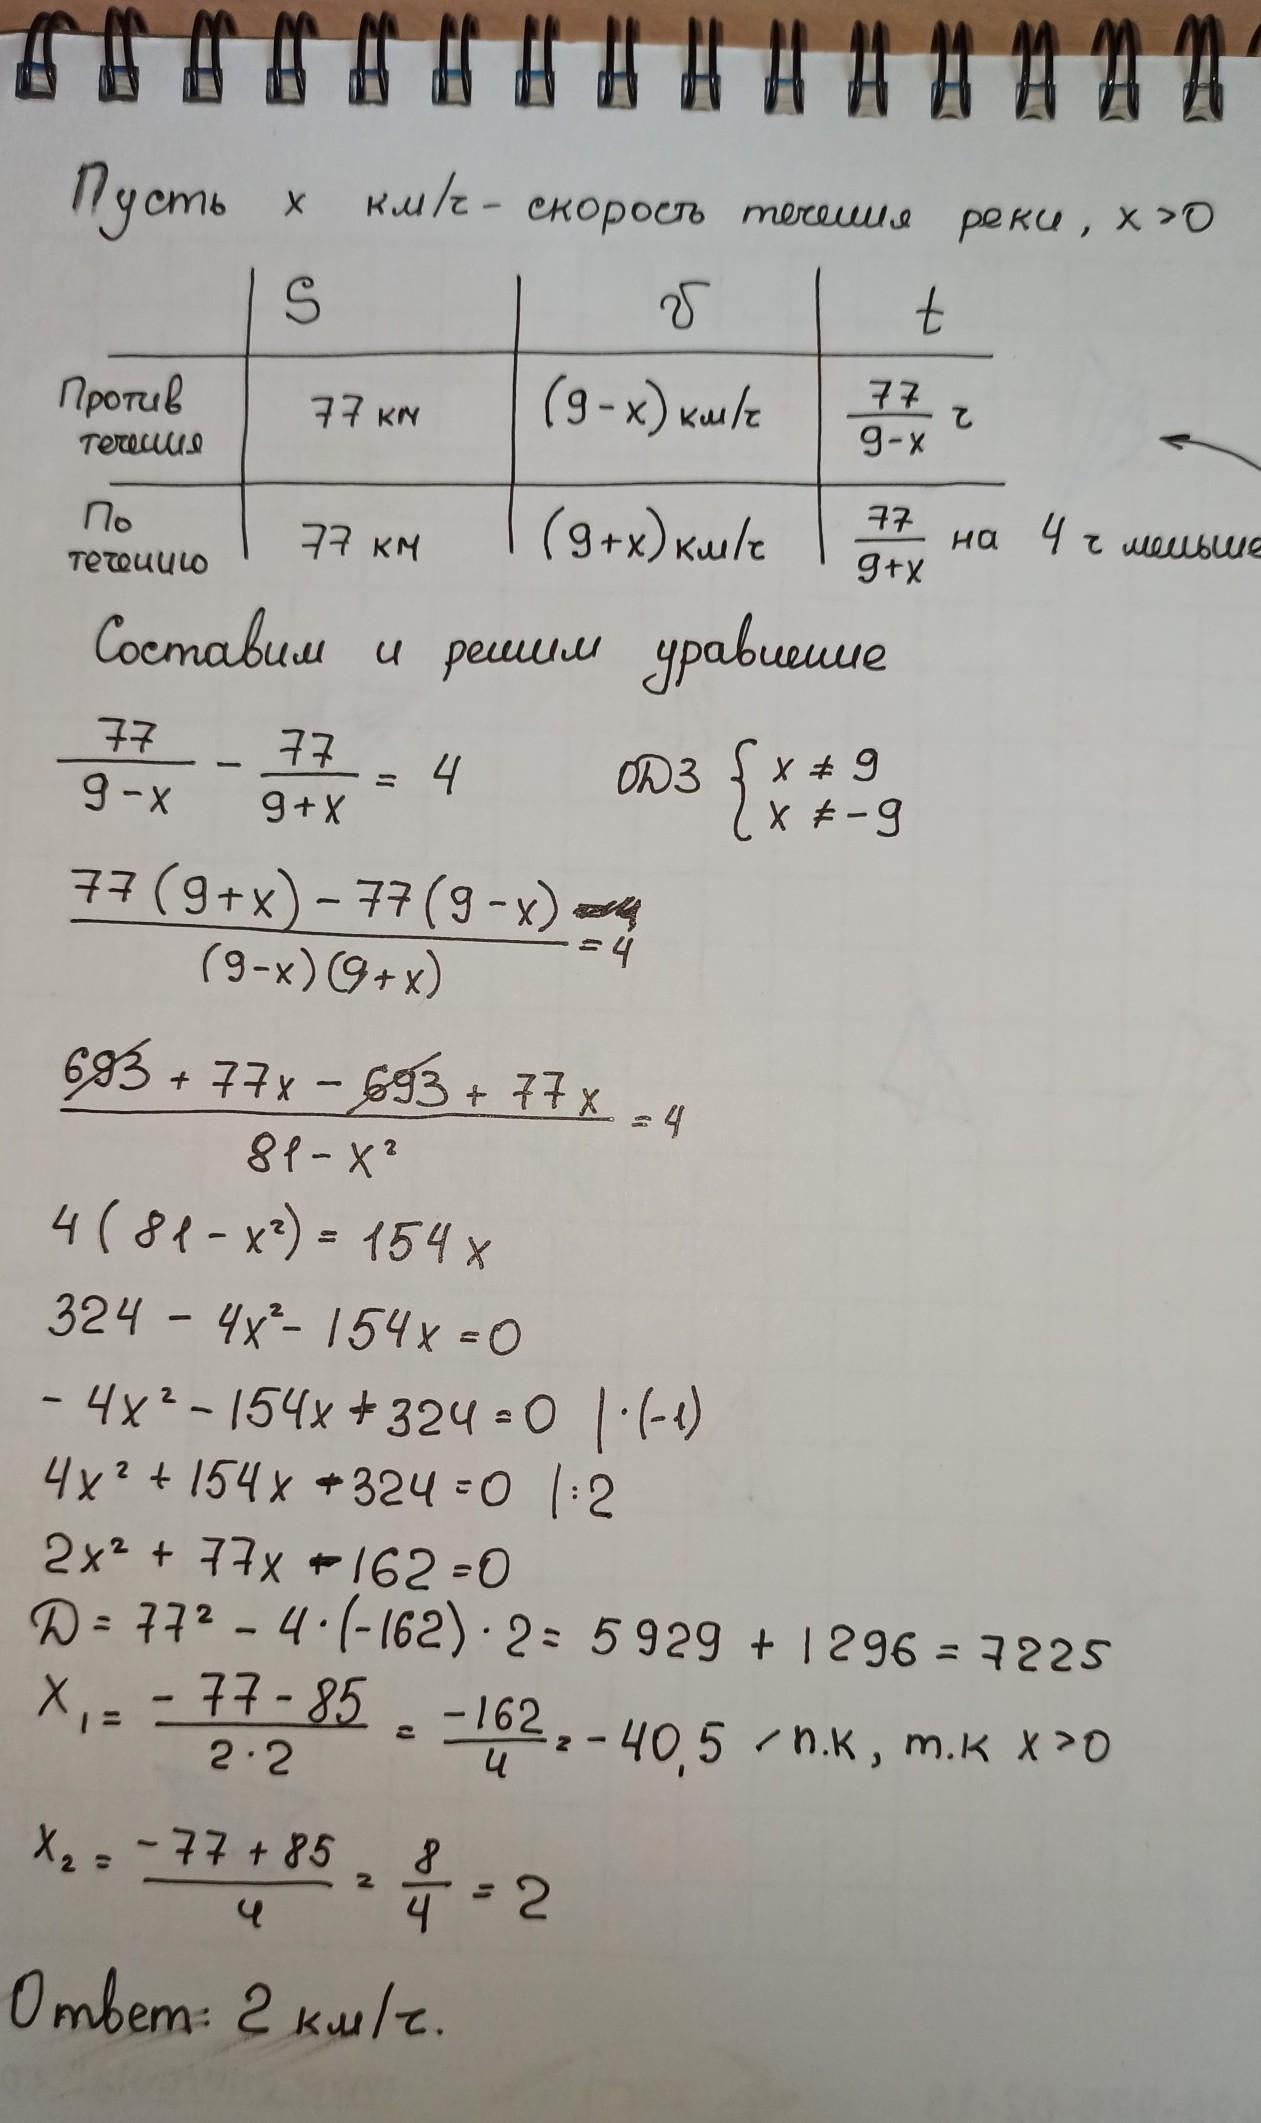 Пусть x км/ч - скорость течения реки, x>0
S v t
Против течения 77 км (9-x) км/ч 77/(9-x) ч
По течению 77 км (9+x) км/ч 77/(9+x) на 4 ч меньше
Составим и решим уравнение
77/(9-x) - 77/(9+x) = 4 ОДЗ { x ≠ 9 x ≠ -9
(77(9+x) - 77(9-x))/((9-x)(9+x)) = 4
(693 + 77x - 693 + 77x)/(81 - x²) = 4
4(81 - x²) = 154x
324 - 4x² - 154x = 0
- 4x² - 154x + 324 = 0 |·(-1)
4x² + 154x - 324 = 0 |:2
2x² + 77x - 162 = 0
D = 77² - 4·(-162)·2 = 5929 + 1296 = 7225
x₁ = (-77-85)/(2·2) = -162/4 = -40,5 - п.к, т.к x>0
x₂ = (-77+85)/4 = 8/4 = 2
Ответ: 2 км/ч.